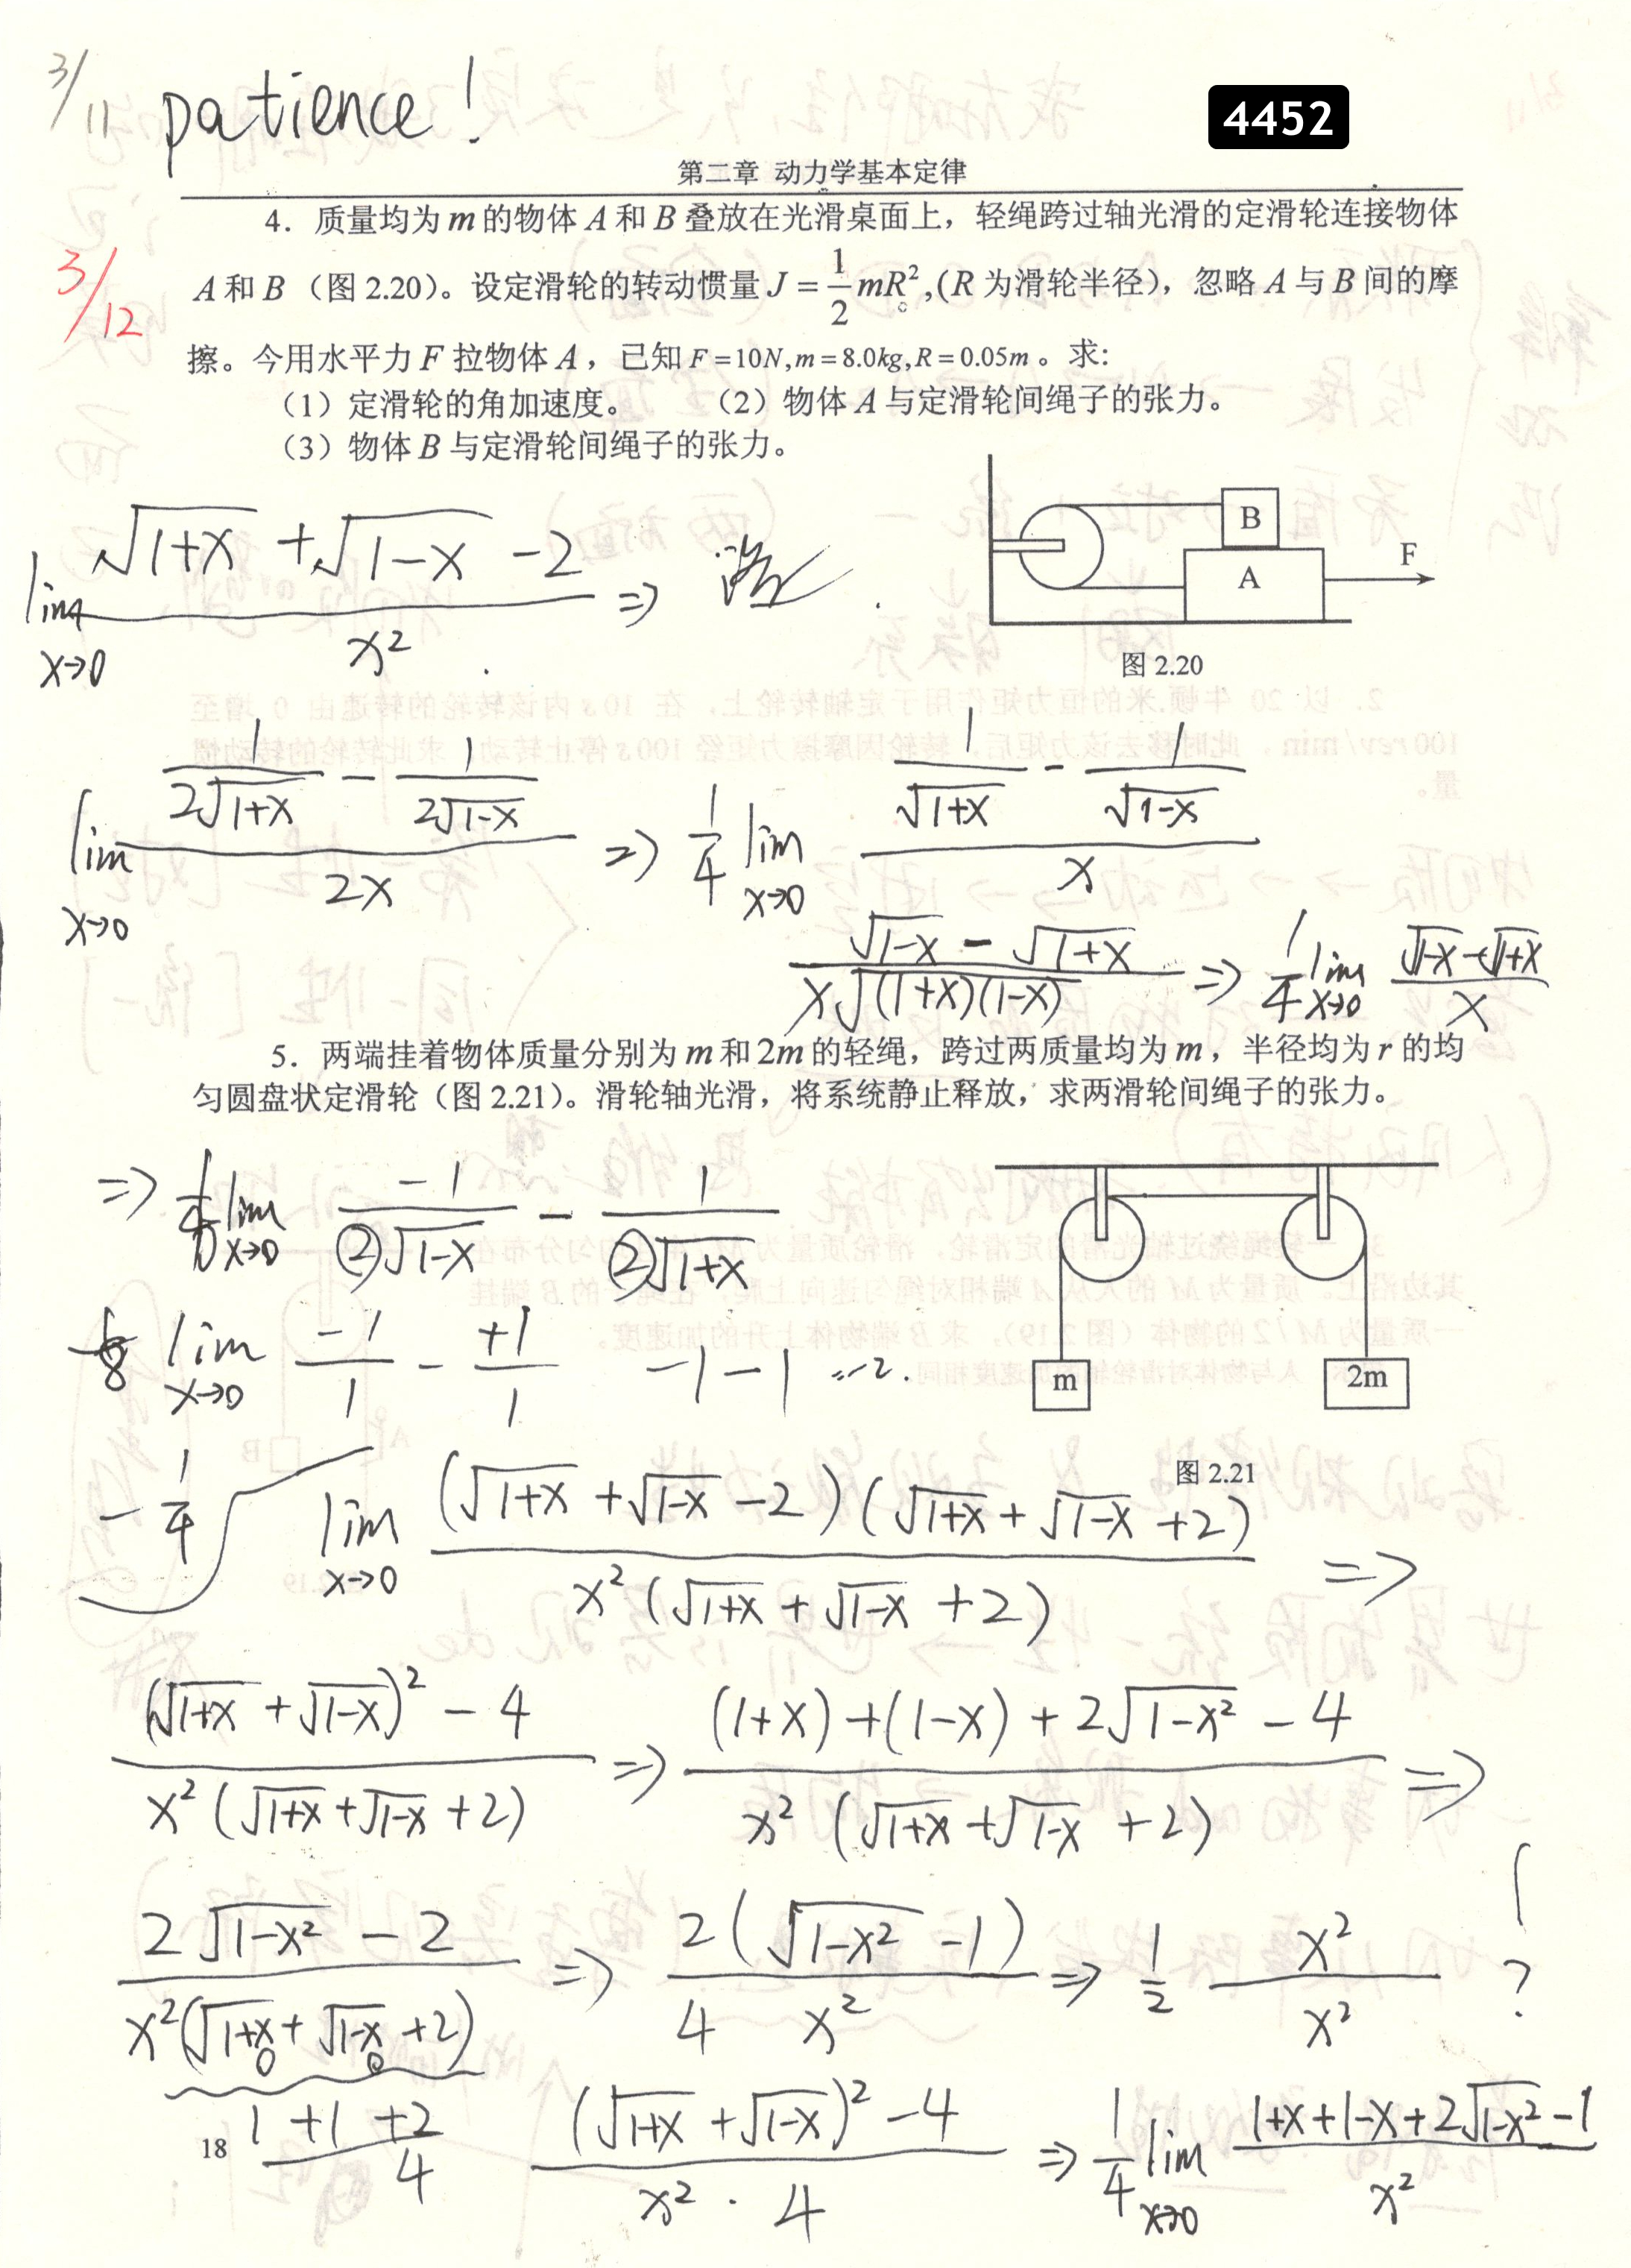 3/11 patience!
4452
第二章 动力学基本定律
3/12
4. 质量均为 m 的物体 A 和 B 叠放在光滑桌面上，轻绳跨过轴光滑的定滑轮连接物体
A 和 B （图 2.20）。设定滑轮的转动惯量 J = 1/2 mR²,(R 为滑轮半径），忽略 A 与 B 间的摩
擦。今用水平力 F 拉物体 A ，已知 F = 10N, m = 8.0kg, R = 0.05m 。求:
（1）定滑轮的角加速度。 （2）物体 A 与定滑轮间绳子的张力。
（3）物体 B 与定滑轮间绳子的张力。
B
A
F
图 2.20
lim x→0 (√(1+x) + √(1-x) - 2) / x² ⇒ 洛
lim x→0 (1/(2√(1+x)) - 1/(2√(1-x))) / 2x ⇒ 1/4 lim x→0 (1/√(1+x) - 1/√(1-x)) / x
(√(1-x) - √(1+x)) / (x√((1+x)(1-x))) ⇒ 1/4 lim x→0 (√(1-x) - √(1+x)) / x
5. 两端挂着物体质量分别为 m 和 2m 的轻绳，跨过两质量均为 m ，半径均为 r 的均
匀圆盘状定滑轮（图 2.21）。滑轮轴光滑，将系统静止释放，求两滑轮间绳子的张力。
m
2m
图 2.21
⇒ lim x→0 -1/(②√(1-x)) - 1/(②√(1+x))
8 lim x→0 -1/1 - +1/1 -1-1 = -2.
-1/4
lim x→0 (√(1+x) + √(1-x) - 2)(√(1+x) + √(1-x) + 2) / x²(√(1+x) + √(1-x) + 2) ⇒
((√(1+x) + √(1-x))² - 4) / x²(√(1+x) + √(1-x) + 2) ⇒ ((1+x)+(1-x) + 2√(1-x²) - 4) / x²(√(1+x) + √(1-x) + 2) ⇒
(2√(1-x²) - 2) / x²(√(1+x) + √(1-x) + 2) ⇒ 2(√(1-x²) - 1) / 4 x² ⇒ 1/2 x²/x² ?
0 0
1 + 1 + 2
4
((√(1+x) + √(1-x))² - 4) / x² · 4 ⇒ 1/4 lim x→0 (1+x+1-x+2√(1-x²) - 1) / x²
18